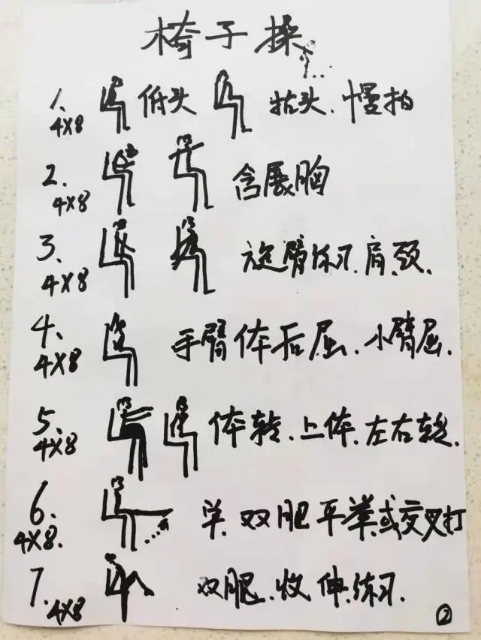 椅子操
1、4×8 低头 抬头、慢拍
2、4×8 含展胸
3、4×8 旋臂练习、肩、颈、
4、4×8 手臂体后屈、小臂屈、
5、4×8 体转、上体、左右转、
6、4×8、单、双腿平举或交叉打
7、4×8 双腿、收伸、练习、
②